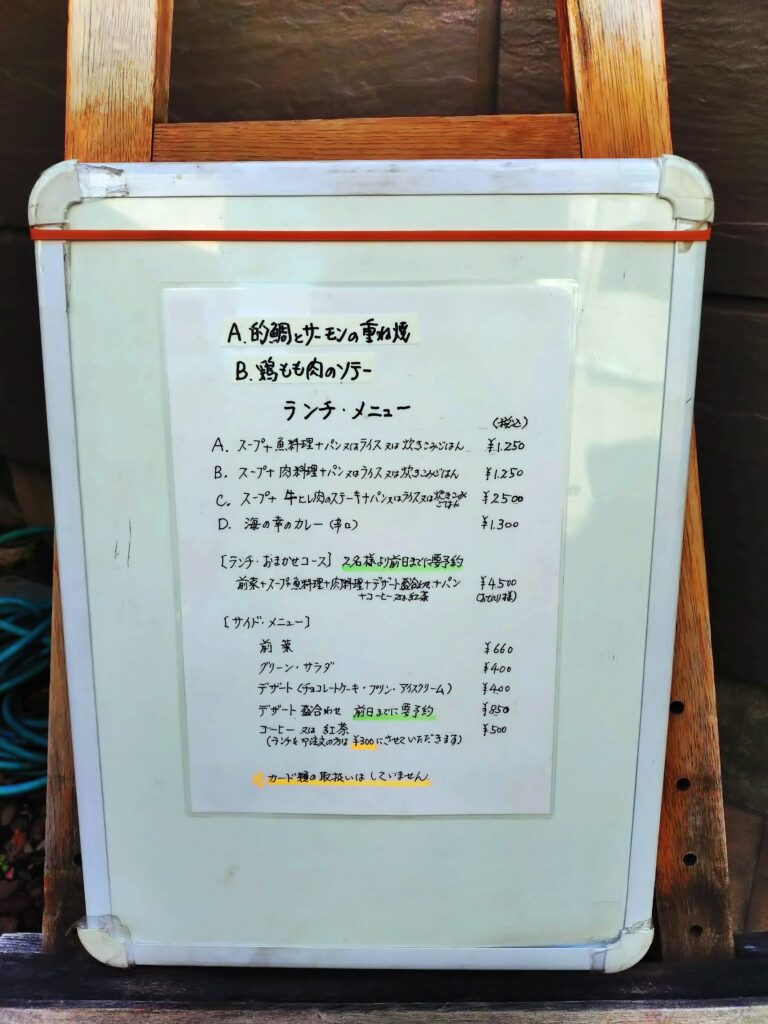 A. 的鯛とサーモンの重ね焼
B. 鶏もも肉のソテー
ランチ・メニュー
(税込)
A. スープ+魚料理+パン又はライス又は炊きこみごはん ¥1.250
B. スープ+肉料理+パン又はライス又は炊きこみごはん ¥1.250
C. スープ+牛ヒレ肉のステーキ+パン又はライス又は炊きこみごはん ¥2500
D. 海の幸のカレー(辛口) ¥1.300
[ランチ・おまかせコース] 2名様より前日までに要予約
前菜+スープ+魚料理+肉料理+デザート盛合わせ+パン ¥4.500
+コーヒー又は紅茶 (お1人様)
[サイド・メニュー]
前菜 ¥660
グリーン・サラダ ¥400
デザート(チョコレートケーキ・プリン・アイスクリーム) ¥400
デザート盛合わせ 前日までに要予約 ¥850
コーヒー又は紅茶 ¥500
(ランチをご注文の方は¥300にさせていただきます)
カード類の取扱いはしていません